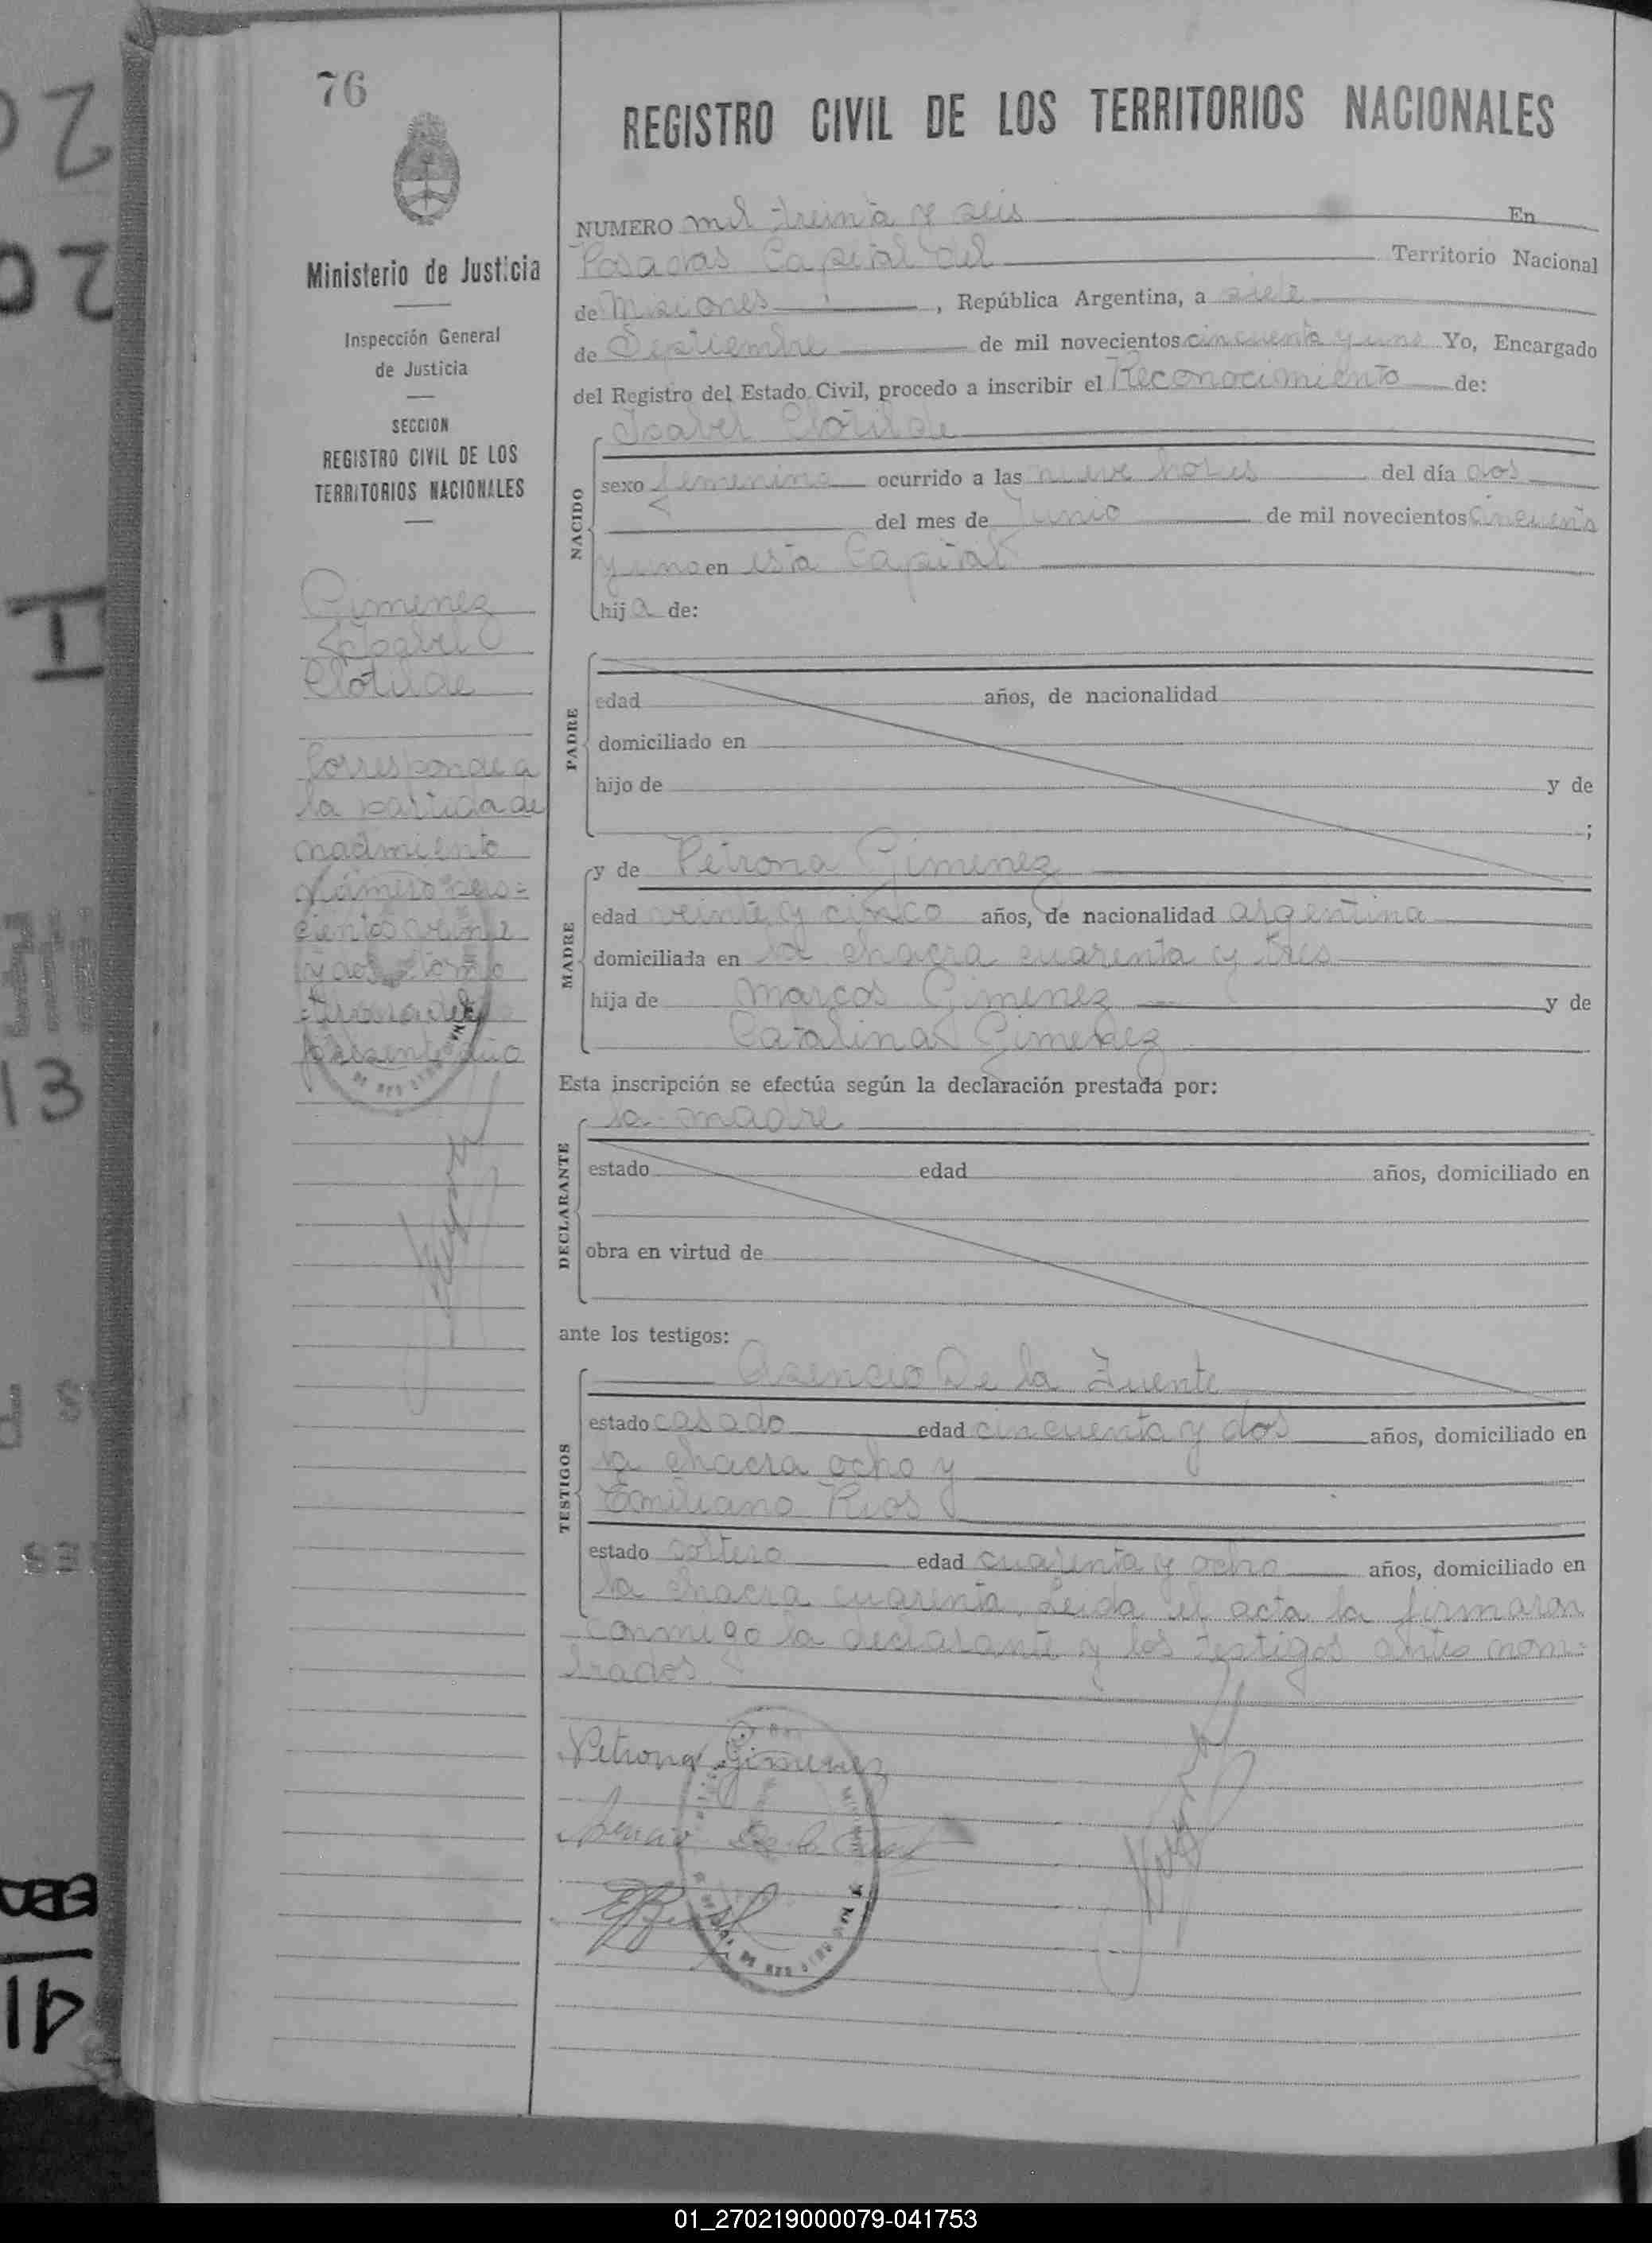 76
REGISTRO CIVIL DE LOS TERRITORIOS NACIONALES
Ministerio de Justicia
Inspección General
de Justicia
SECCION
REGISTRO CIVIL DE LOS
TERRITORIOS NACIONALES
Gimenez
Isabel
Clotilde
Corresponde a
la partida de
nacimiento
número seis=
cientos veinte
y dos tomo
del
presente año
NUMERO mil treinta y seis En
Posadas Capital del Territorio Nacional
de Misiones, República Argentina, a siete
de Septiembre de mil novecientos cincuenta y uno Yo, Encargado
del Registro del Estado Civil, procedo a inscribir el Reconocimiento de:
NACIDO
Isabel Clotilde
sexo femenino ocurrido a las nueve horas del día dos
del mes de Junio de mil novecientos cincuenta
y uno en esta Capital
hija de:
PADRE
edad años, de nacionalidad
domiciliado en
hijo de y de
;
MADRE
y de Petrona Gimenez
edad veinte y cinco años, de nacionalidad argentina
domiciliada en la chacra cuarenta y tres
hija de Marcos Gimenez y de
Catalina Gimenez
Esta inscripción se efectúa según la declaración prestada por:
DECLARANTE
la madre
estado edad años, domiciliado en
obra en virtud de
ante los testigos:
TESTIGOS
Asencio De la Fuente
estado casado edad cincuenta y dos años, domiciliado en
la chacra ocho y
Emiliano Rios
estado soltero edad cuarenta y ocho años, domiciliado en
la chacra cuarenta. Leida el acta la firmaron
conmigo la declarante y los testigos antes nom=
brados.
Petrona Gimenez
Asencio De la Fuente
01_270219000079-041753